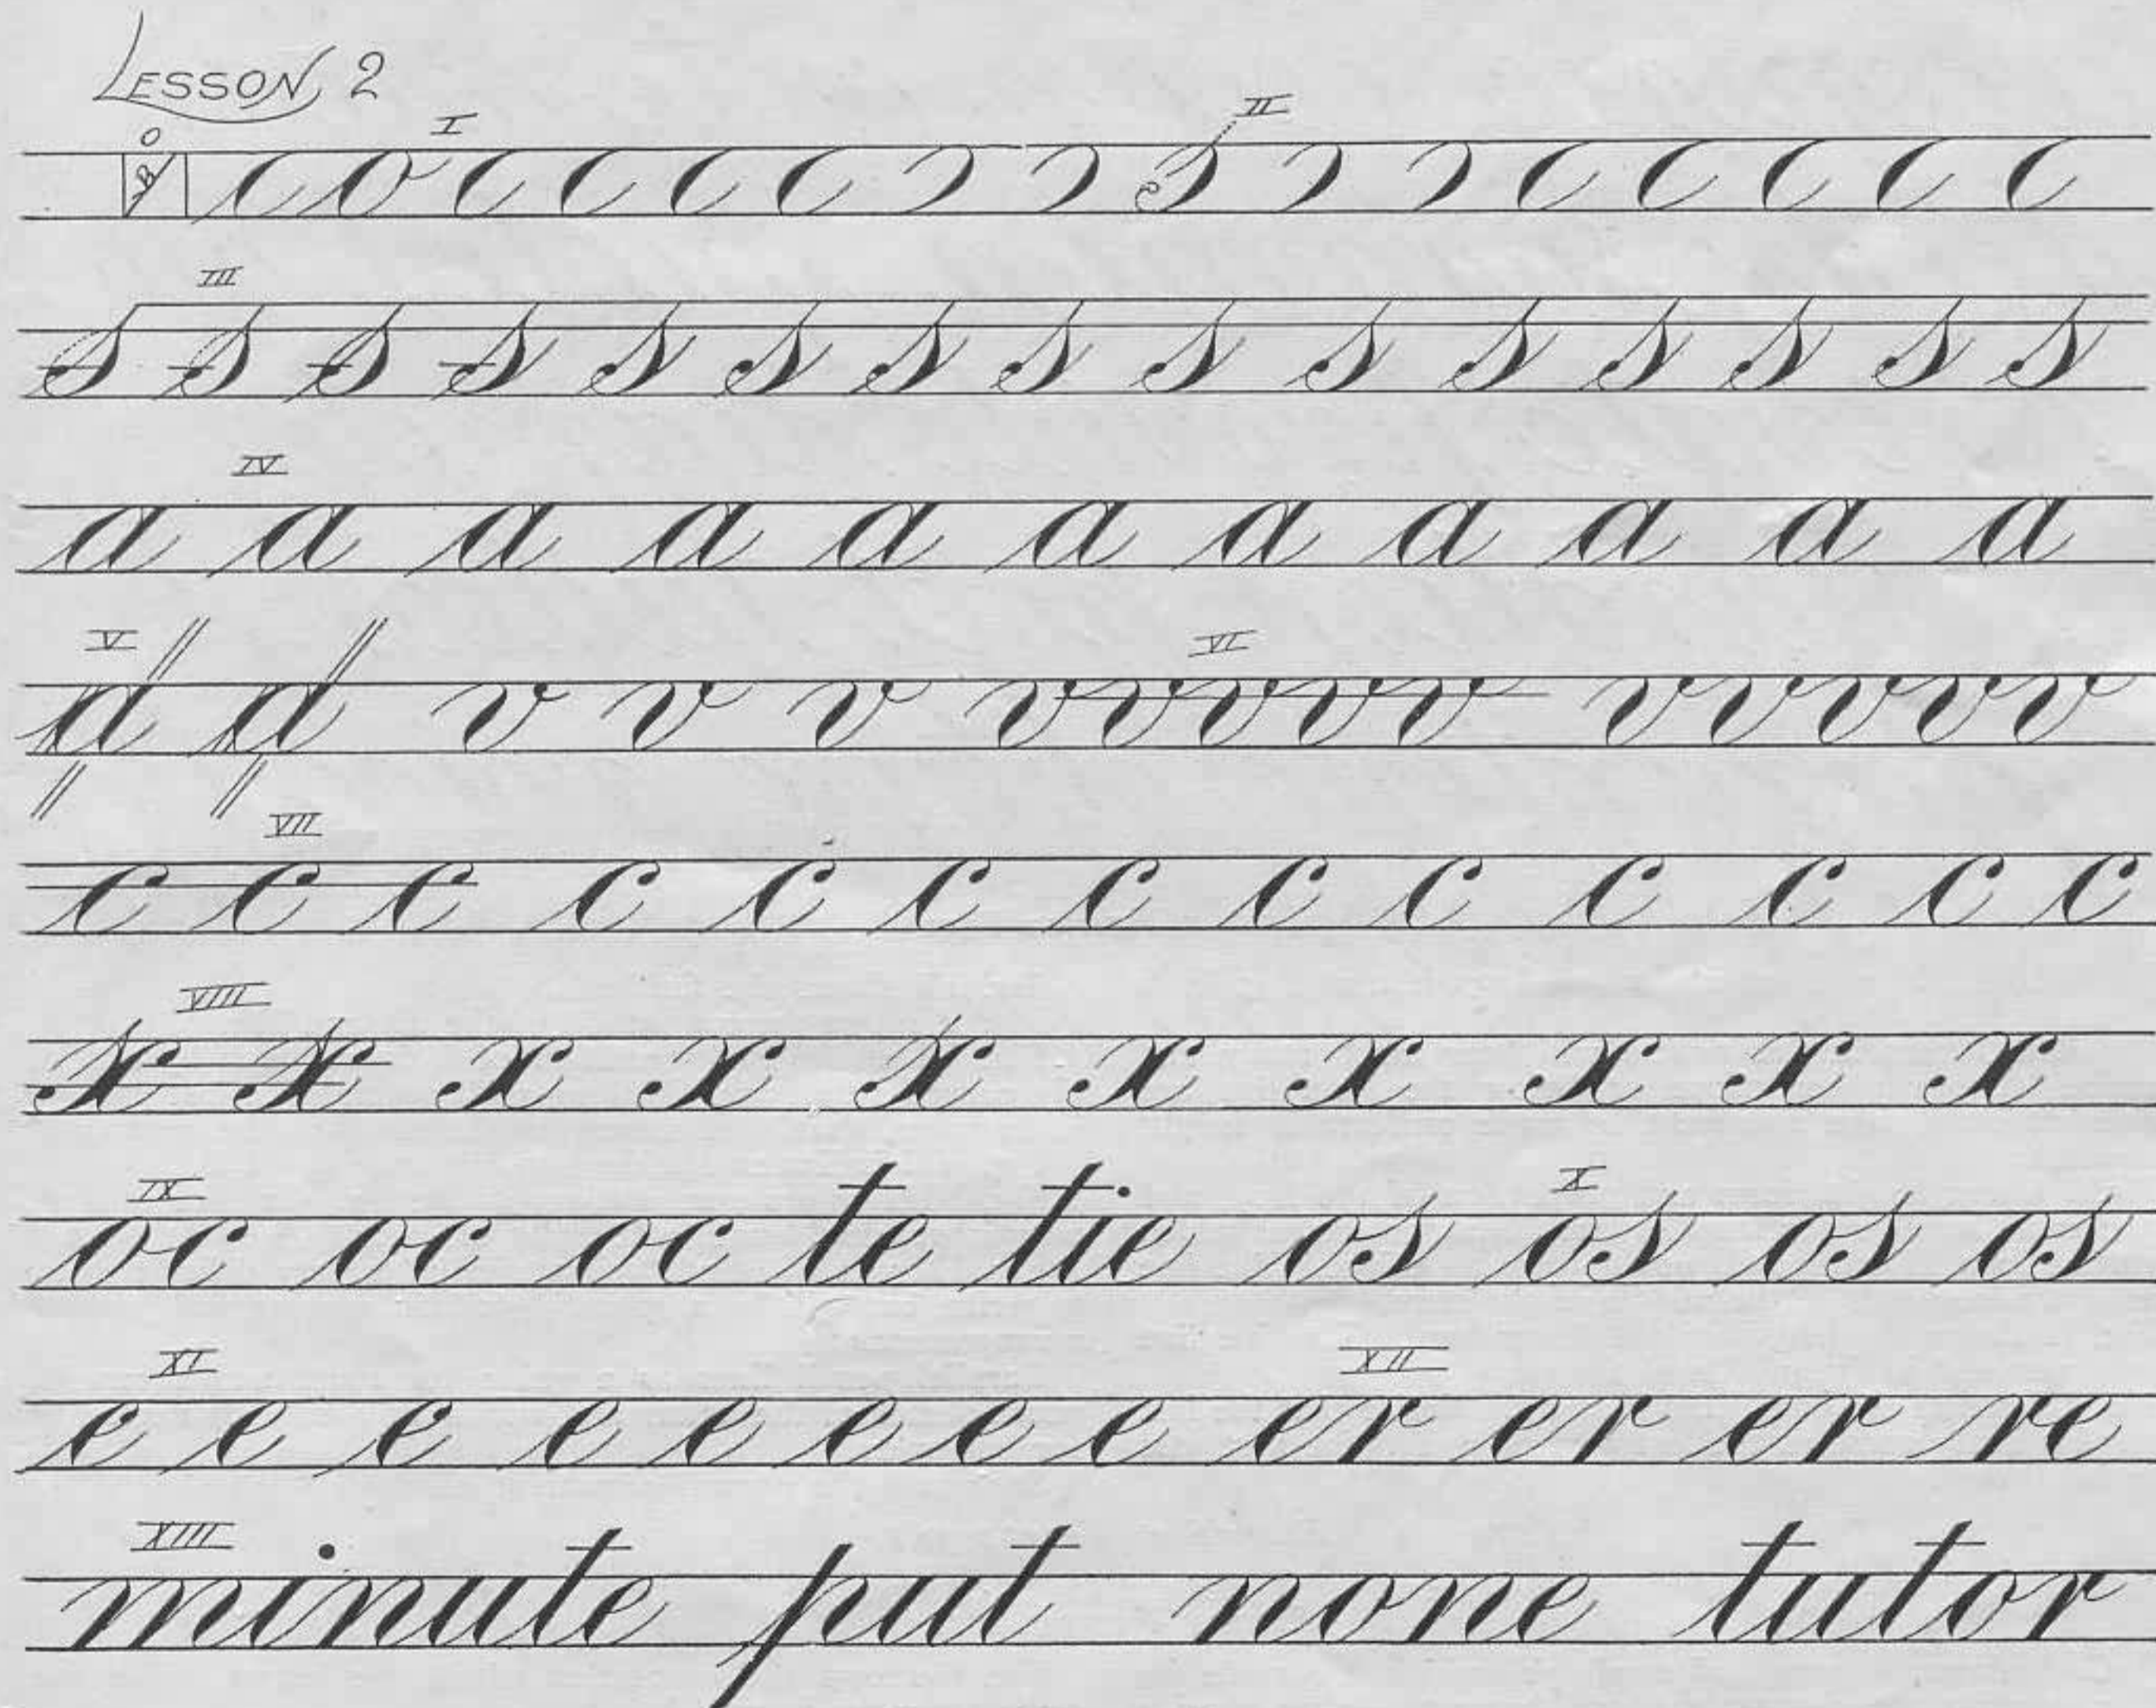 LESSON 2
O I II
B c o c c c c c c c c c
III
s s s s s s s s s s s s s s s
IV
a a a a a a a a a a a
V VI
a a v v v v v v v v v v v v v
VII
c c c c c c c c c c c c c
VIII
x x x x x x x x x x
IX X
oc oc oc te tie os os os os
XI XII
e e e e e e e e er er er re
XIII
minute put none tutor